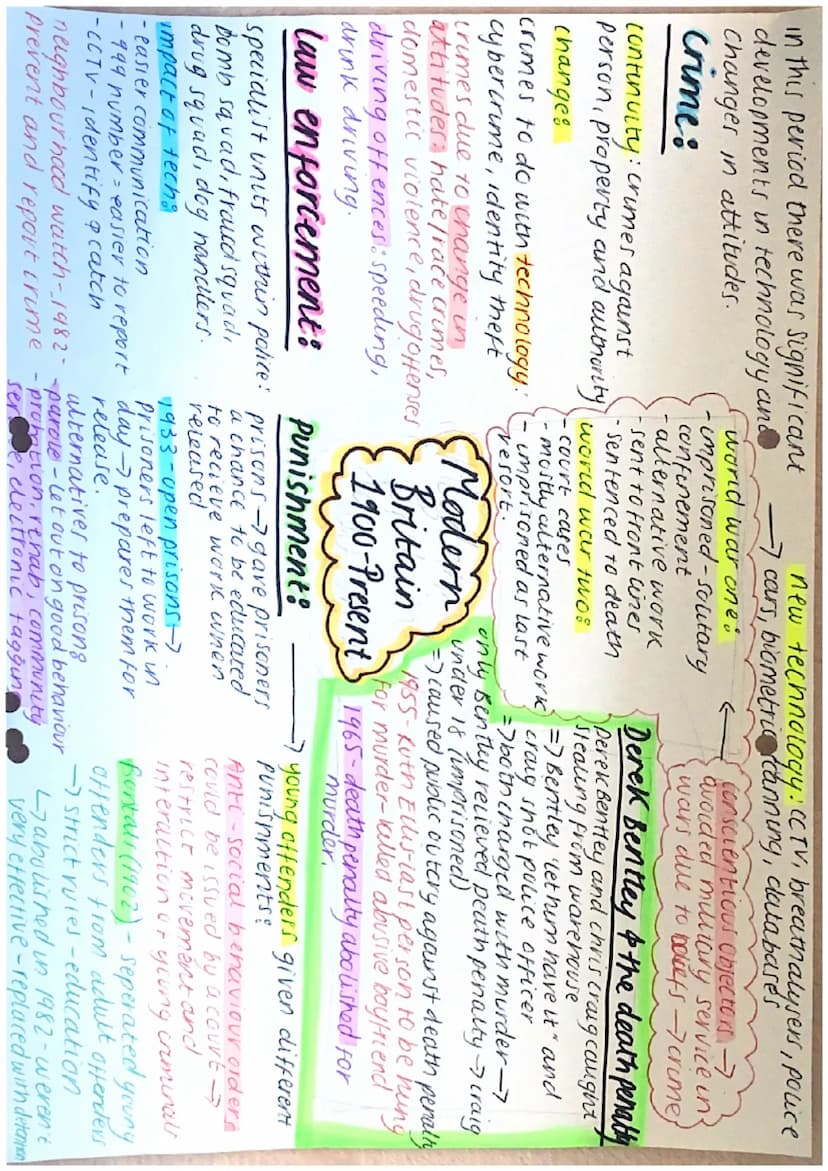 in this period there was significant
developments in technology and
changes in attitudes.
new technology: CCTV, breathalysers, police
→ cars, biometric scanning, databases
Crime:
continuity: crimes against
person, property and authority
change:
crimes to do with technology:
cybercrime, identity theft
crimes due to change in
attitudes: hate/race crimes,
domestic violence, drug offenses
driving offences: speeding,
drunk driving.
conscientious objectors →
avoided military service in
wars due to beliefs → crime
←
world war one:
- imprisoned - solitary
confinement
- alternative work
- sent to front lines
- sentenced to death
world war two:
- court cases
- mostly alternative work
- imprisoned as last
resort.
Derek Bentley & the death penalty
Derek Bentley and Chris Craig caught
stealing from warehouse
⇒ Bentley "let him have it" and
craig shot police officer
⇒ both charged with murder →
only Bentley recieved death penalty → craig
under 18 (imprisoned)
⇒ caused public outcry against death penalty
1955 - Ruth Ellis - last person to be hung
for murder - killed abusive boyfriend
1965 - death penalty abolished for
murder.
Modern
Britain
1900-Present
Law enforcement:
specialist units within police:
bomb squad, fraud squad,
drug squad, dog handlers.
impact of tech:
- easier communication
- 999 number = easier to report
- CCTV - identify & catch
neighbourhood watch - 1982 -
prevent and report crime
Punishment:
prisons → gave prisoners
a chance to be educated
to recieve work when
released
1933 - open prisons →
prisoners left to work in
day → prepares them for
release.
alternatives to prison:
- parole - let out on good behaviour
- probation, rehab, community
electronic tagging
→ young offenders given different
punishments:
Anti-social behaviour orders
could be issued by a court →
restrict movement and
interaction of young criminals
Borstall (1902) - seperated young
offenders from adult offenders
→ strict rules - education
↳ abolished in 1982 - weren't
very effective - replaced with detention